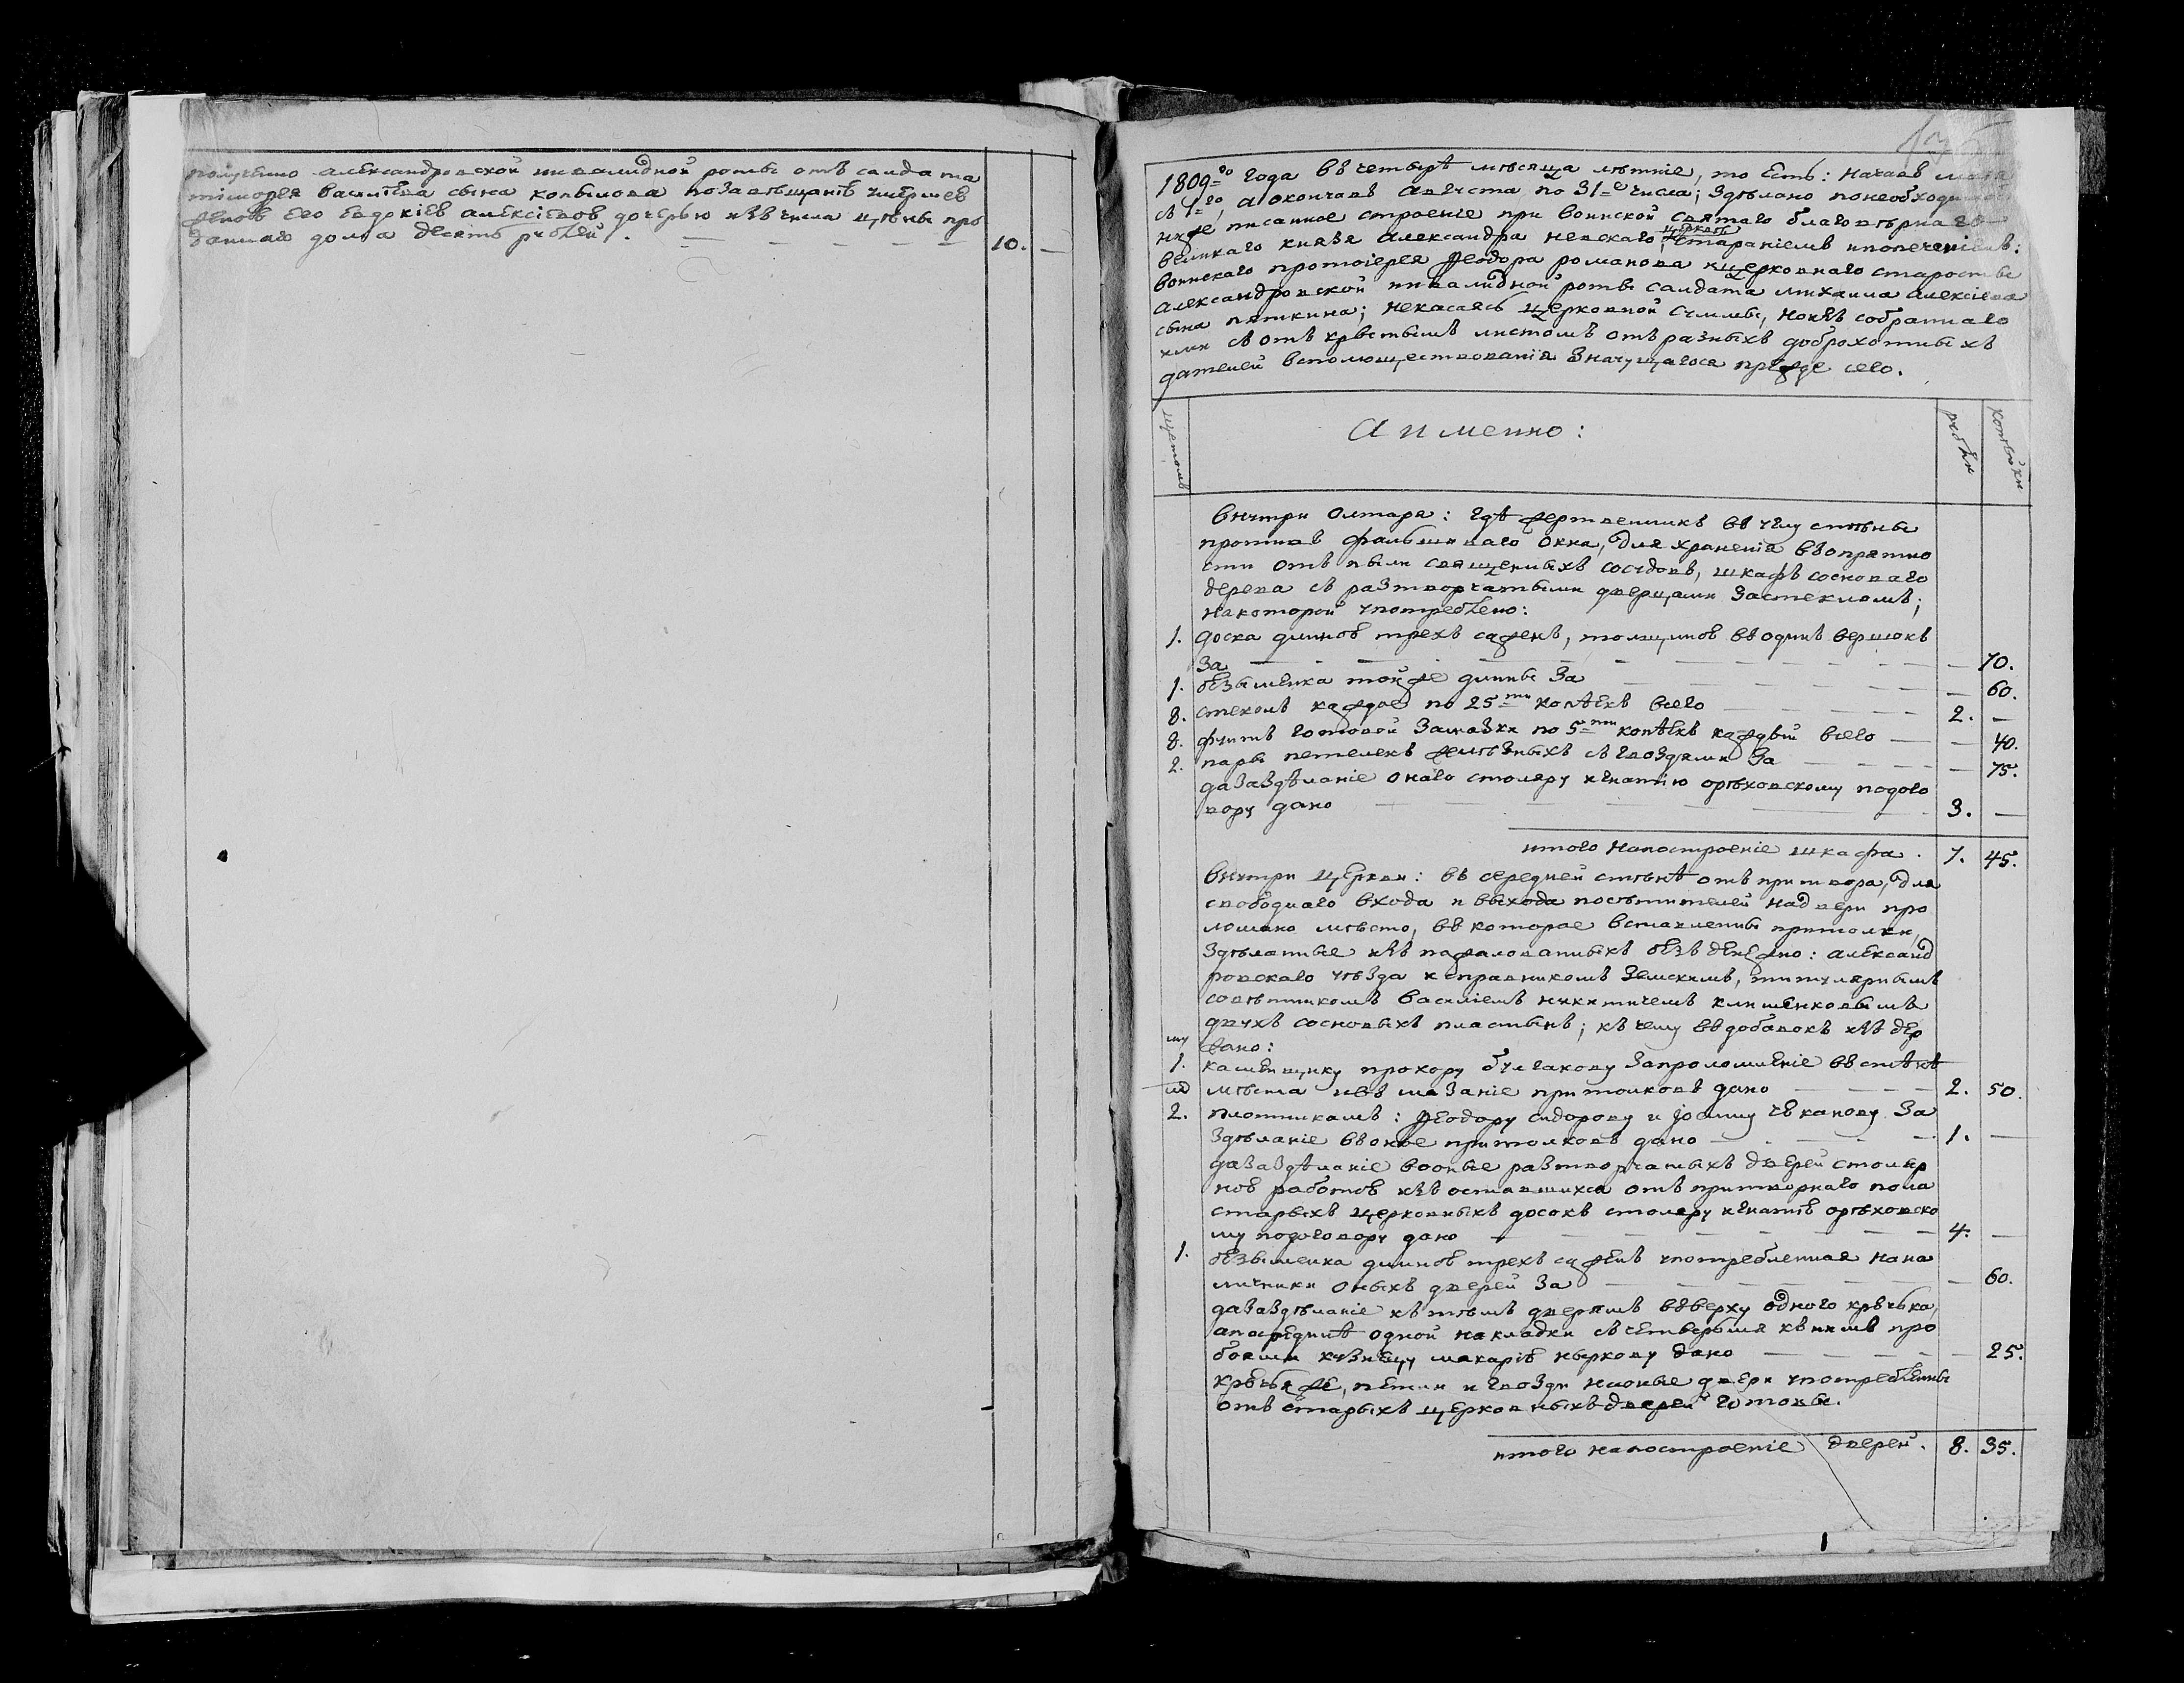 получено александровской инвалидной роты отъ салдата
тимофея васильева сына копылова позавѣщанію умершей
жены его евдокіи алексіевой дочерью изъ числа цѣны про
даннаго дома десять рублей . — — — — — — 10. —
1809=го года въ четырѣ мѣсяца лѣтніе, то есть: начавъ маія
съ 1=го, а окончавъ августа по 31=е числа; здѣлано понеобходимос
ниже писанное строеніе при воинской святаго благовѣрнаго
великаго князя александра невскаго церкви стараніемъ ипопеченіемъ:
воинскаго протоіерея феодора романова ицерковнаго старосты
александровской инвалидной роты салдата михаила алексіева
сына пяткина; некасаясь церковной суммы, ноизъ собраннаго
ими съ отъ крытымъ листомъ отъ разныхъ доброхотныхъ
дателей вспомоществованія значущагося прежде сего.
щетомъ
а именно:
рубли
копѣйки
внутри олтаря: гдѣ жертвенникъ въ углу стѣны
противъ фальшиваго окна, для храненія въопрятно
сти отъ пыли священныхъ сосудовъ, шкафъ сосноваго
дерева съ разтворчатыми дверцами застекломъ;
накоторой употреблено:
1. доска длиною трехъ саженъ, толщиною въодинъ вершокъ
за — — — — — — — 70.
1. безыменка тойже длины за — — — — — 60.
8. стеколъ каждое по 25=ти копѣекъ всего — — — 2. —
8. фунтъ готовой замазки по 5=ти копѣекъ каждый всего — — 40.
2. пары петелекъ желѣзныхъ съ гвоздями за — — — — 75.
даза здѣланіе онаго столяру игнатію орѣховскому подого
вору дано — — — — — — 3. —
итого напостроеніе шкафа . 7. 45.
внутри церкви: въ середней стѣнѣ отъ притвора, для
свободнаго входа и выхода посѣтителей надвери про
ломано мѣсто, въ которае вставлены притолки,
здѣланные изъ пожалованныхъ безъ денежно: александ
ровскаго уѣзда исправникомъ земскимъ, титулярнымъ
совѣтникомъ василіемъ никитичемъ клименковымъ
двухъ сосновыхъ пластынъ; къ чему въдобавокъ издер
жано:
му
1. каменщику прохору булгакову запроломленіе въстѣнѣ
мѣста ивъ мазаніе притолковъ дано — — — — 2. 50.
2. плотникамъ: феодору сидорову и іоанну чеканову за
здѣланіе въоное притолковъ дано — — — — 1. —
даза здѣланіе вооные разтворчатыхъ дверей столяр
ною работою изъ оставшихся отъ притворнаго пола
старыхъ церковныхъ досокъ столяру игнатію орѣховско
му подоговору дано — — — — — — 4. —
1. безыменка длиною трехъ саженъ употребленная нана
личники оныхъ дверей за — — — — — — 60.
даза здѣланіе къ тѣмъ дверямъ въверху одного крючька,
апосрединѣ одной накладки съ четверьмя кънимъ про
боями кузнецу макарію ныркову дано — — — — 25.
крючья же, петли и гвозди наоные двери употребленны
отъ старыхъ церковныхъ дверей готовы.
итого напостроеніе дверей . 8. 35.